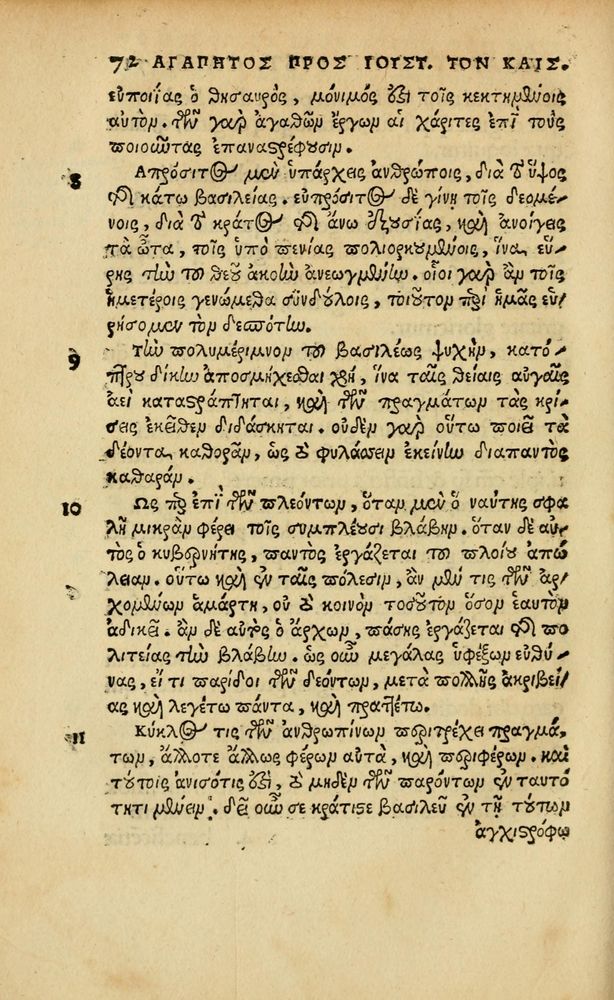 72 ΑΓΑΠΗΤΟΣ ΠΡΟΣ ΙΟΥΣΤ. ΤΟΝ ΚΑΙΣ.
εὐποιΐας ὁ θησαυρός, μόνιμός ἐστι τοῖς κεκτημένοις
αυτόν. τῶν γὰρ ἀγαθῶν ἔργων αἱ χάριτες ἐπὶ τοὺς
ποιοῦντας ἐπαναστρέφουσιν.
8 Απρόσιτος μὲν ὑπάρχεις ἀνθρώποις, διὰ τὸ ὕψος
τῆς κάτω βασιλείας. εὐπρόσιτος δὲ γίνῃ τοῖς δεομέ-
νοις, διὰ τὸ κράτος τῆς ἄνω ἐξουσίας, καὶ ἀνοίγεις
τὰ ὦτα, τοῖς ὑπὸ πενίας πολιορκουμένοις, ἵνα εὕ-
ρῃς τὴν τοῦ θεοῦ ἀκοὴν ἀνεωγμένην. οἷοι γὰρ ἂν τοῖς
ἡμετέροις γενώμεθα συνδούλοις, τοιοῦτον περὶ ἡμᾶς εὑ-
ρήσομεν τὸν δεσπότην.
9 Τὴν πολυμέριμνον τοῦ βασιλέως ψυχὴν, κατό-
πτρου δίκην ἀποσμήχεσθαι χρὴ, ἵνα ταῖς θείαις αὐγαῖς
ἀεὶ καταστράπτηται, καὶ τῶν πραγμάτων τὰς κρί-
σεις ἐκεῖθεν διδάσκηται. οὐδὲν γὰρ οὕτω ποιεῖ τὰ
δέοντα καθορᾶν, ὡς τὸ φυλάττειν ἐκείνην διαπαντὸς
καθαράν.
10 Ως περ ἐπὶ τῶν πλεόντων, ὅταν μὲν ὁ ναύτης σφα
λῇ μικρὰν φέρει τοῖς συμπλέουσι βλάβην. ὅταν δὲ αὐ-
τὸς ὁ κυβερνήτης, παντὸς ἐργάζεται τοῦ πλοίου ἀπώ
λειαν. οὕτω καὶ ἐν ταῖς πόλεσιν, ἂν μέν τις τῶν ἀρ-
χομένων ἁμάρτῃ, οὐ τὸ κοινὸν τοσοῦτον ὅσον ἑαυτὸν
ἀδικεῖ. ἂν δὲ αὐτὸς ὁ ἄρχων, πάσης ἐργάζεται τῆς πο
λιτείας τὴν βλάβην. ὡς οὖν μεγάλας ὑφέξων εὐθύ-
νας, εἴ τι παρίδοι τῶν δεόντων, μετὰ πολλῆς ἀκριβεί-
ας καὶ λεγέτω πάντα, καὶ πραττέτω.
11 Κύκλος τις τῶν ἀνθρωπίνων περιτρέχει πραγμά-
των, ἄλλοτε ἄλλως φέρων αὐτὰ, καὶ περιφέρων. καὶ
τούτοις ἀνισότις ἐστὶ, τὸ μηδὲν τῶν παρόντων ἐν ταυτό
τητι μένειν. δεῖ οὖν σε κράτιστε βασιλεῦ ἐν τῇ τούτων
ἀγχιστρόφω